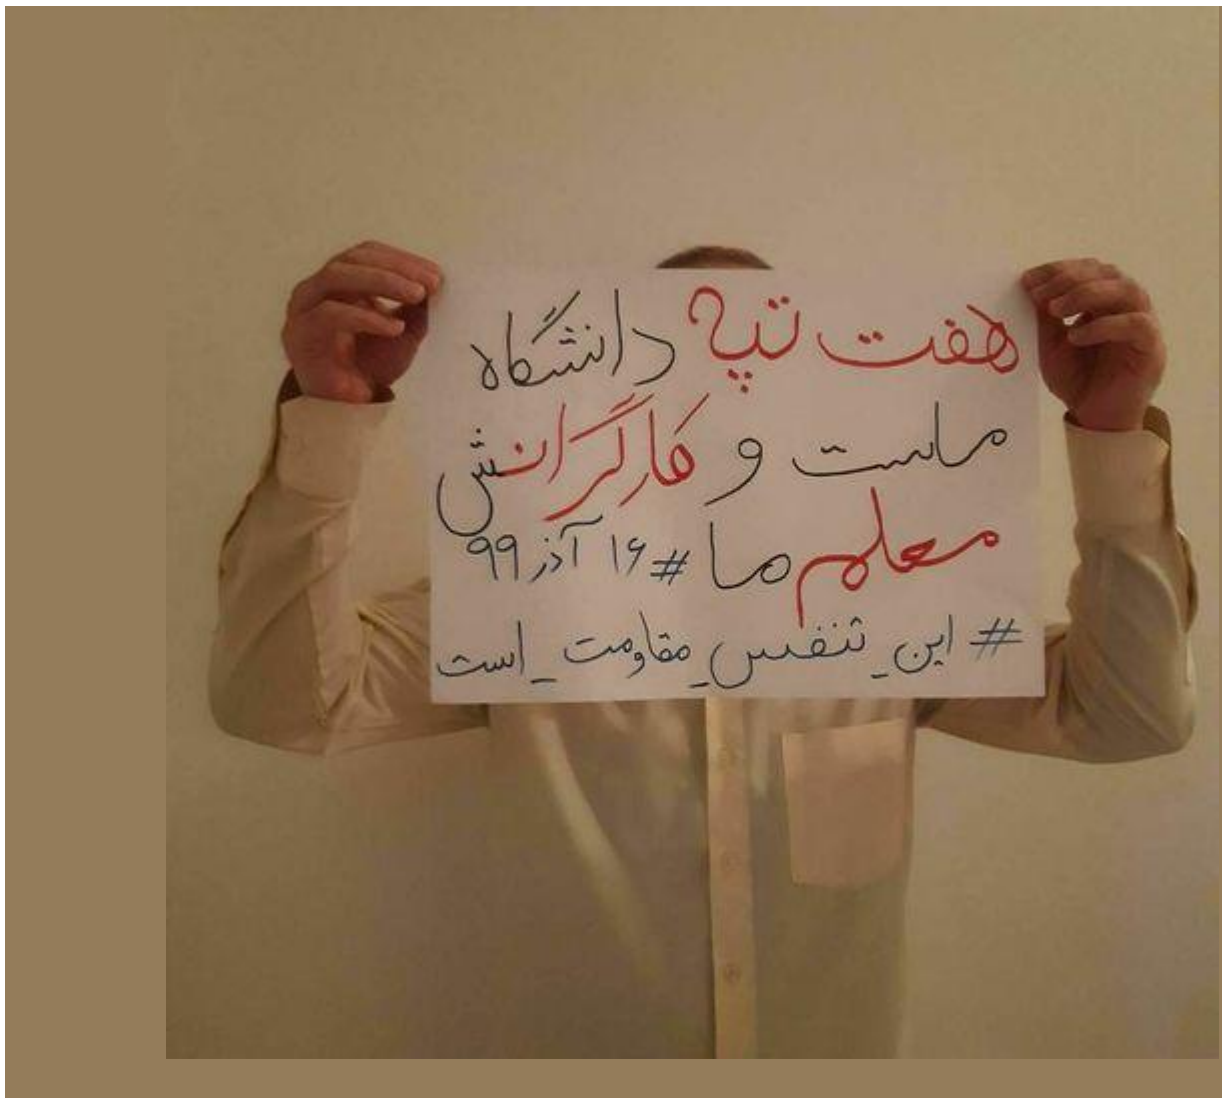 هفت تپه دانشگاه
ماست و کارگرانش
معلم ما #۱۶ آذر ۹۹
# این_تنفس_مقاومت_است